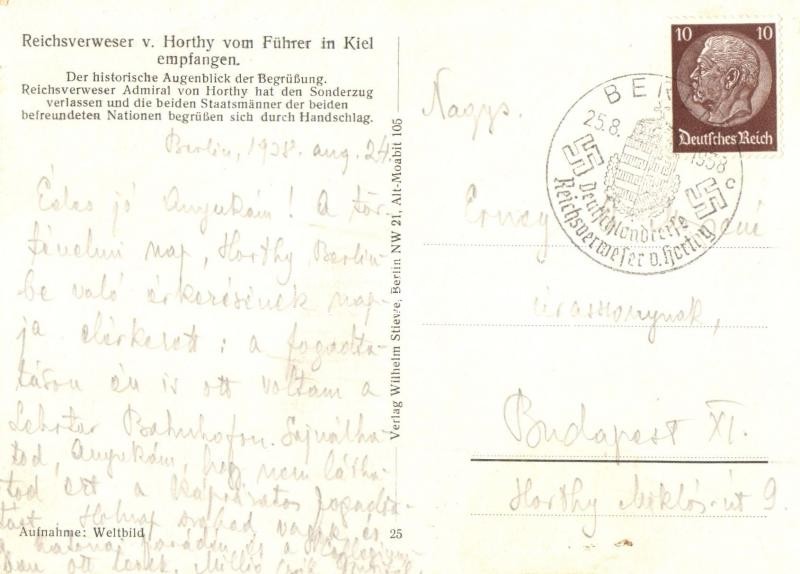 Reichsverweser v. Horthy vom Führer in Kiel
empfangen.
Der historische Augenblick der Begrüßung.
Reichsverweser Admiral von Horthy hat den Sonderzug
verlassen und die beiden Staatsmänner der beiden
befreundeten Nationen begrüßen sich durch Handschlag.
Berlin, 1938. aug. 24.
Édes jó Anyukám! A tör-
ténelmi nap, Horthy Berlin-
be való érkezésének nap-
ja elérkezett: a fogadta-
táson én is ott voltam a
Lehrter Bahnhofon. Sajnálha-
tod, Anyukám, hogy nem látha-
tod ezt a káprázatos fogadta-
tást. Holnap szabad vagyok és
a katonai parádén és a
ott leszek. Millió
Aufnahme: Weltbild
25
Verlag Wilhelm Stiewe, Berlin NW 21, Alt-Moabit 105
10 10
Deutsches Reich
BER
25.8. 1938
c
Deutschlandreise
Reichsverweser v. Horthy
Nagys.
Erney
úrasszonynak,
Budapest XI.
Horthy Miklós-út 9.